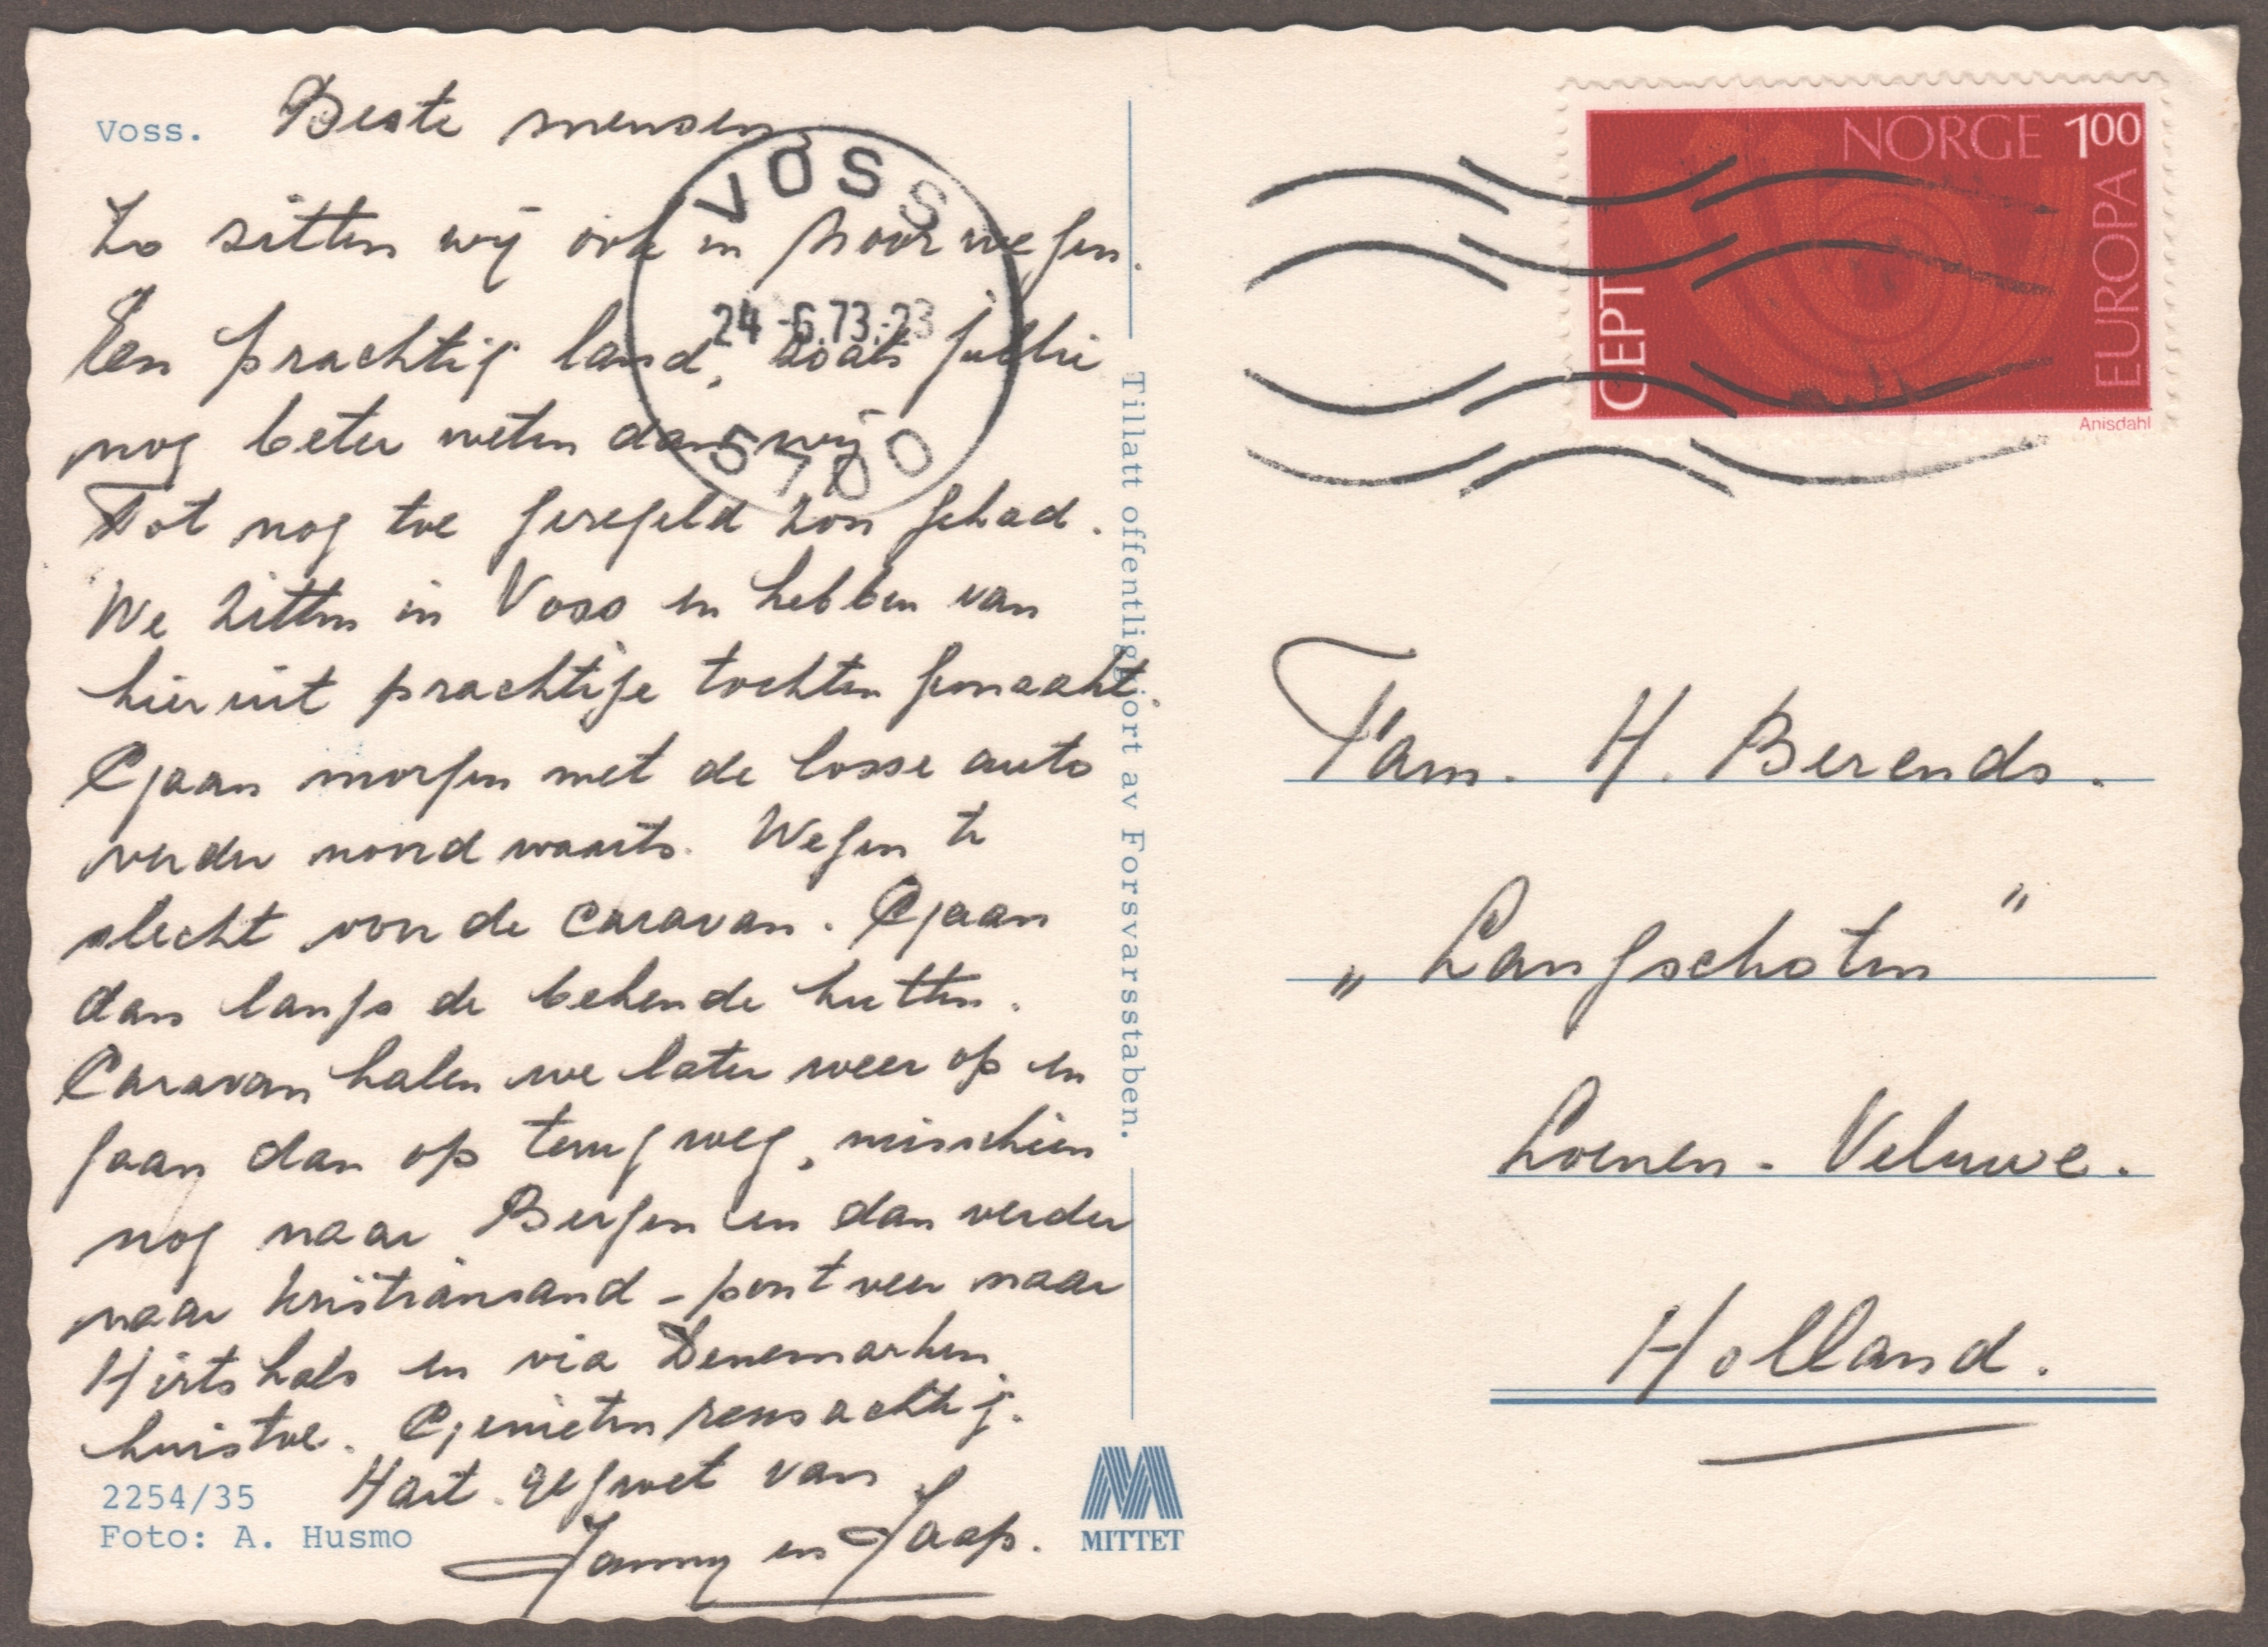 Voss.
Beste mensen,
Zo zitten wij ook in Noorwegen.
Een prachtig land, zoals jullie
nog beter weten dan wij
Tot nog toe geregeld zon gehad.
We zitten in Voss en hebben van
hieruit prachtige tochten gemaakt.
Gaan morgen met de losse auto
verder noordwaarts. Wegen te
slecht voor de caravan. Gaan
dan langs de bekende hutten.
Caravan halen we later weer op en
gaan dan op terugweg, misschien
nog naar Bergen en dan verder
naar Kristiansand - pont veer naar
Hirtshals en via Denemarken
huistoe. Genieten reusachtig.
Hart. gegroet van
Janny en Jaap.
2254/35
Foto: A. Husmo
VOSS
24.-6.73.-23
5700
Tillatt offentliggjort av Forsvarsstaben.
MITTET
NORGE 100
CEPT
EUROPA
Anisdahl
Fam. H. Berends.
„Langschoten”
Loenen - Veluwe.
Holland.